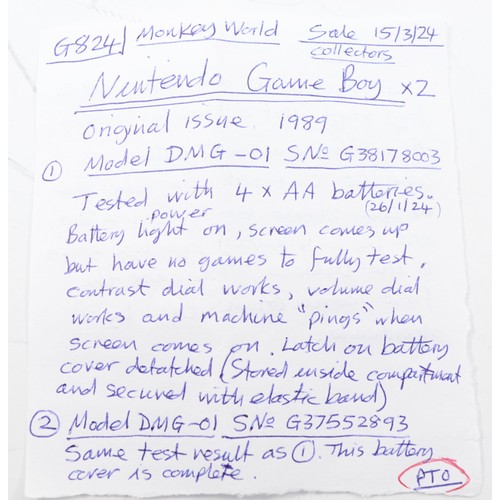 G824 Monkey World Sale 15/3/24
collectors
Nintendo Game Boy x2
original issue 1989
① Model DMG-01 SNo G38178003
Tested with 4 x AA batteries.
(26/1/24)
power
Battery light on, screen comes up
but have no games to fully test,
contrast dial works, volume dial
works and machine "pings" when
screen comes on. Latch on battery
cover detatched (Stored inside compartment
and secured with elastic band)
② Model DMG-01 SNo G37552893
Same test result as ①. This battery
cover is complete.
PTO